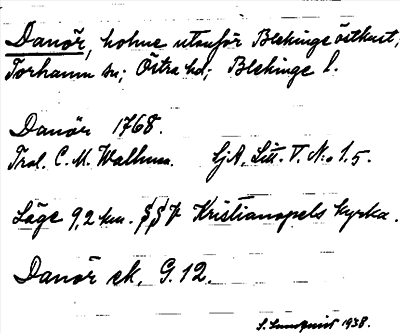 Danör, holme utanför Blekinge östkust,
Torhamn sn; Östra hd; Blekinge l.
Danör 1768.
Trol. C. M. Walhum. LjA, Litt. V. No 1.5.
Läge 9,2 km. Kristianopels kyrka.
Danör ek. G. 12.
S. Lundquist 1938.